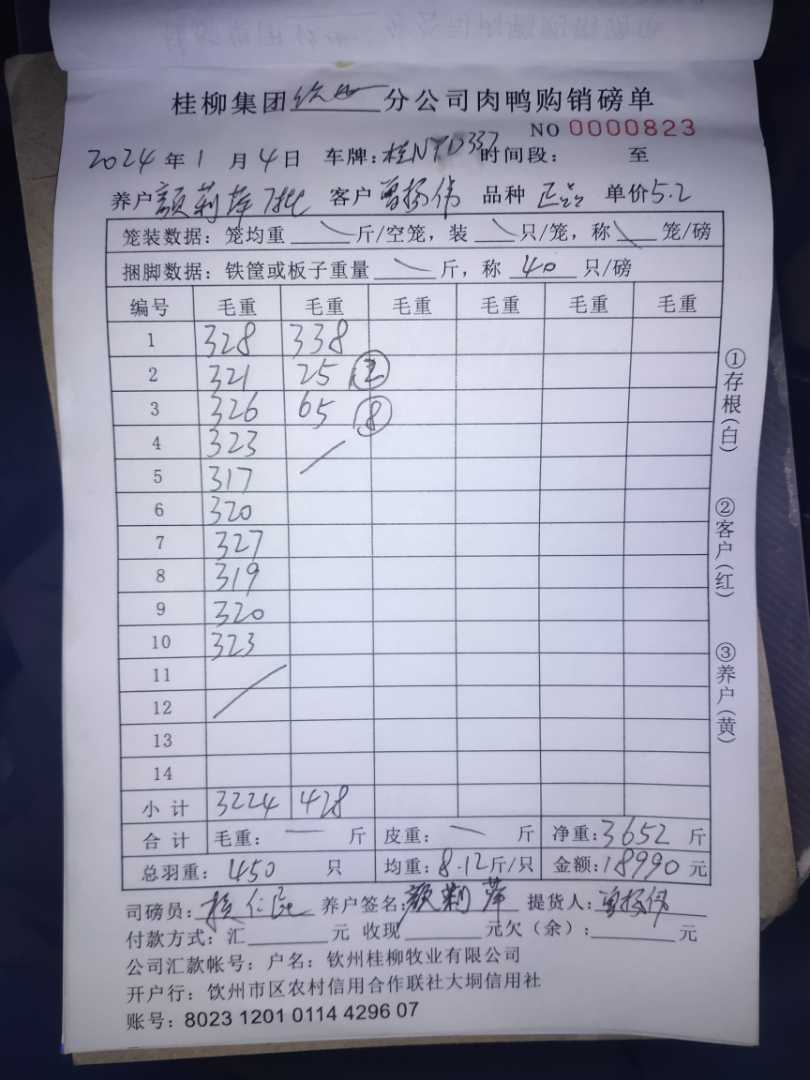 桂柳集团钦州分公司肉鸭购销磅单
NO 0000823
2024年1月4日 车牌:桂N 时间段: 至
养户颜莉萍 客户曾扬伟 品种正品 单价5.2
笼装数据: 笼均重 斤/空笼, 装 只/笼, 称 笼/磅
捆脚数据: 铁筐或板子重量 斤, 称 40 只/磅
编号 毛重 毛重 毛重 毛重 毛重 毛重
1 328 338
2 321 25 ②
3 326 65 ⑧
4 323
5 317
6 320
7 327
8 319
9 320
10 323
11
12
13
14
小计 3224 428
合计 毛重: 斤 皮重: 斤 净重:3652 斤
总羽重: 450 只 均重:8.12斤/只 金额:18990元
司磅员: 养户签名:颜莉萍 提货人:曾扬伟
付款方式: 汇 元 收现 元欠(余): 元
公司汇款帐号: 户名: 钦州桂柳牧业有限公司
开户行: 饮州市区农村信用合作联社大垌信用社
账号: 8023 1201 0114 4296 07
①存根(白)
②客户(红)
③养户(黄)